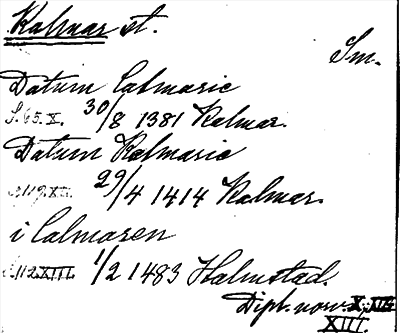 Kalmar st.
Sm.
Datum Calmarie
S. 65. X. 30/8 1381 Kalmar.
Datum Kalmarie
119. XII. 29/4 1414 Kalmar.
i Calmaren
112. XIII. 1/2 1483 Halmstad.
Dipl. norv. X; XII
XIII.